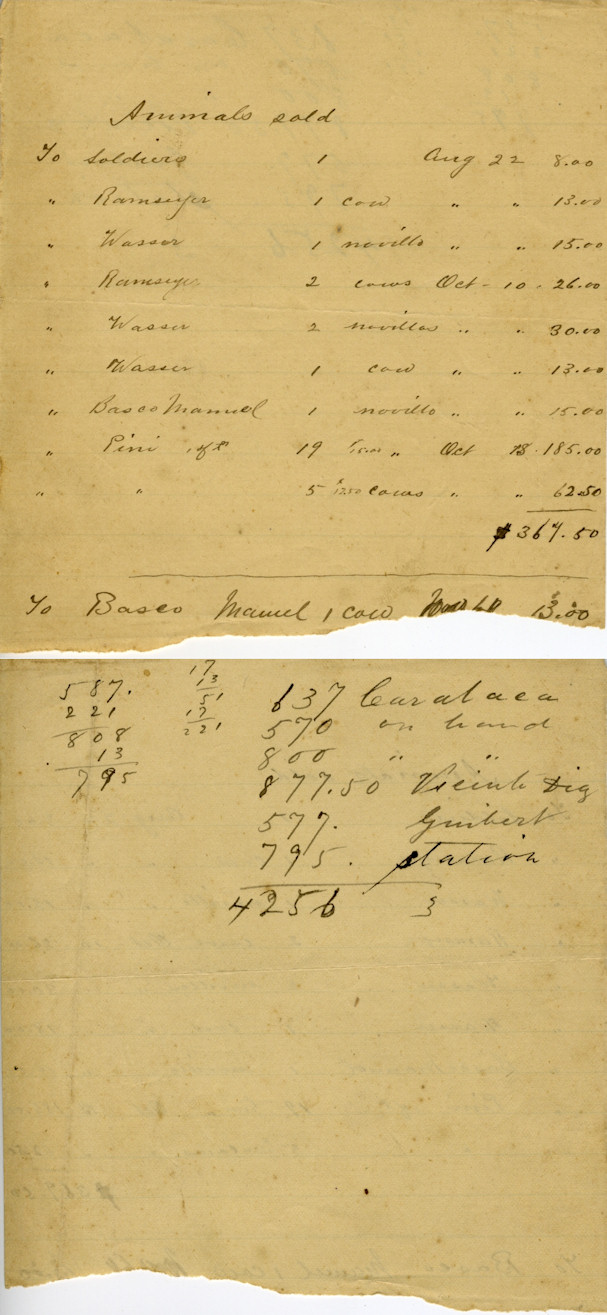 Animals sold
To Soldiers 1 Aug 22 8.00
" Ramseyer 1 cow " " 13.00
" Wasser 1 novillo " " 15.00
" Ramseyer 2 cows Oct - 10 - 26.00
" Wasser 2 novillos " " 30.00
" Wasser 1 cow " " 13.00
" Basco Manuel 1 novillo " " 15.00
" Pini 19 " Oct 13 - 185.00
" " 5 $12.50 cows " " 62.50
$367.50
To Basco Manuel 1 cow 13.00
587.
221
808
13
795
17
13
51
17
221
637
570 on hand
800 " "
877.50 Dig
577. Guibert
795. station
4256 3